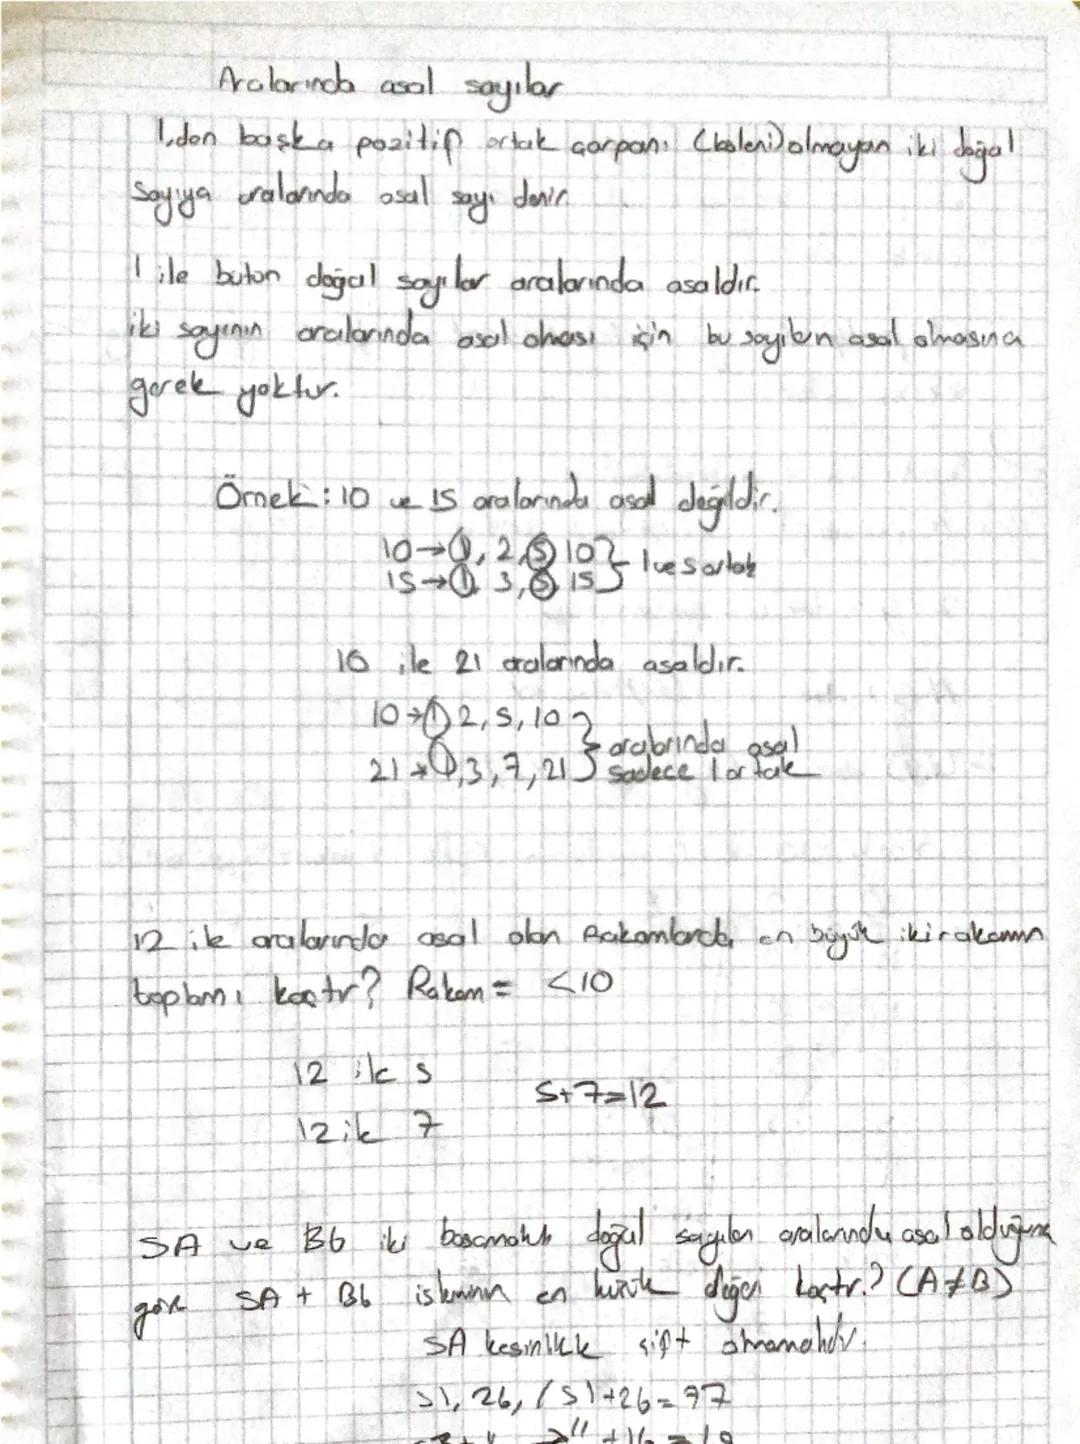 Aralarında asal sayılar
1'den başka pozitif ortak çarpanı (böleni) olmayan iki doğal
sayıya aralarında asal sayı denir
1 ile bütün doğal sayılar aralarında asaldır.
iki sayının aralarında asal olması için bu sayıların asal olmasına
gerek yoktur.
Örnek: 10 ve 15 aralarında asal değildir.
10→1, 2, 5, 10 } 1 ve 5 ortak
15→1, 3, 5, 15
10 ile 21 aralarında asaldır.
10→1 2, 5, 10 } aralarında asal
21→1,3,7,21 sadece 1 ortak
12 ile aralarında asal olan Rakamlarda en büyük iki rakamın
toplamı kaçtır? Rakam = <10
12 ile 5
5+7=12
12 ile 7
5A ve B6 iki basamaklı doğal sayıları aralarında asal olduğuna
göre 5A + B6 işleminin en küçük değeri kaçtır? (A≠B)
5A kesinlikle çift olmamalıdır.
51, 26, 51+26=77